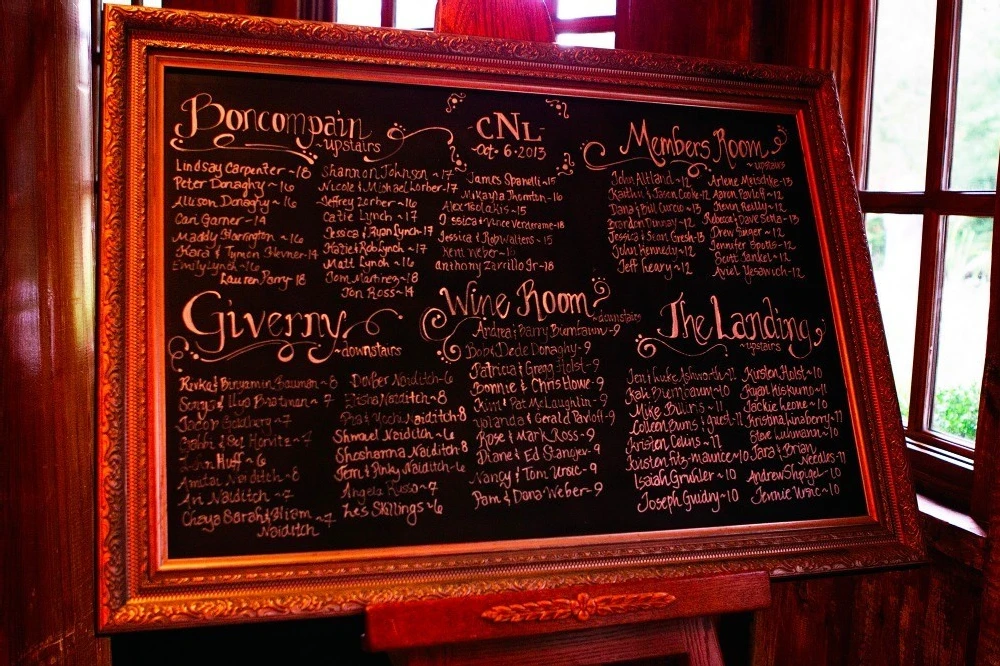 Boncompain
~upstairs
Lindsay Carpenter ~ 18
Peter Donaghy ~ 16
Allison Donaghy ~ 16
Cari Garner ~ 14
Maddy ~ 16
Kara & Tymon ~ 14
Emily Lynch ~ 16
Lauren Parry ~ 18
Shannon Johnson ~ 17
Nicole & Michael Lorber ~ 17
Jeffrey Zorber ~ 16
Catie Lynch ~ 17
Jessica & Ryan Lynch ~ 17
Katie & Rob Lynch ~ 17
Matt Lynch ~ 16
Tom Martinez ~ 18
Jon Ross ~ 14
CNL
~ Oct. 6. 2013
James Spanelli ~ 15
Mikayla Thornton ~ 16
Alex ~ 15
Jessica & Vince Verderame ~ 18
Jessica & Rob Walters ~ 15
Kent Weber ~ 15
Anthony Zarrillo Jr ~ 18
Members Room
~upstairs
John Altland ~ 12
Kaitlin & Jason Cooke ~ 12
Dana & Bill Curcio ~ 13
Brandon ~ 12
Jessica & Sean Gresh ~ 13
John Kennedy ~ 12
Jeff Keary ~ 12
Arlene Meischke ~ 13
Aaron Pavloff ~ 12
Kevin Reilly ~ 12
Rebecca & Dave Setta ~ 13
Drew Singer ~ 12
Jennifer ~ 12
Scott Tankel ~ 12
Ariel Yesawich ~ 12
Giverny
~downstairs
Rivka & Binyamin Bauman ~ 8
~ 7
Jacob Goldberg ~ 7
Horvitz ~ 7
Huff ~ 6
Amitai Neiditch ~ 8
Ari Naiditch ~ 7
Chaya Sarah & Uliam ~ 7
Naiditch
DovBer Naiditch ~ 6
Elisha Naiditch ~ 8
Naiditch ~ 8
Shmuel Neiditch ~ 6
Shoshanna Naiditch ~ 8
Terri & Pinky Naiditch ~ 6
Angela Russo ~ 7
Les Skillings ~ 6
Wine Room
~downstairs
Andrea & Barry Burnbaum ~ 9
Bob & Dede Donaghy ~ 9
Patricia & Gregg Holst ~ 9
Bonnie & Chris Howe ~ 9
Kim & Pat McLaughlin ~ 9
Yolanda & Gerald Pavloff ~ 9
Rose & Mark Ross ~ 9
Diane & Ed Stanger ~ 9
Nancy & Tom Ursic ~ 9
Pam & Dana Weber ~ 9
The Landing
~upstairs
Jen & Luke Ashworth ~ 11
Burnbaum ~ 10
Mike ~ 11
Colleen Burns & guest ~ 11
Kristen Collins ~ 11
Kristen Fitz-maurice ~ 10
Isaiah Gruhler ~ 10
Joseph Guidry ~ 10
Kirsten Holst ~ 10
Ryan ~ 11
Jackie Leone ~ 10
Kristina Linaberry ~ 11
Steve Luhmann ~ 10
Tara & Brian
Needles ~ 11
Andrew Shpigel ~ 10
Jennie Ursic ~ 10